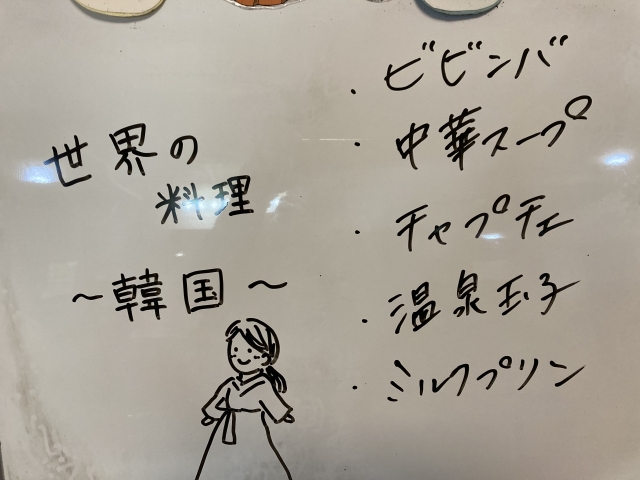 世界の
料理
～韓国～
・ビビンバ
・中華スープ
・チャプチェ
・温泉玉子
・ミルクプリン